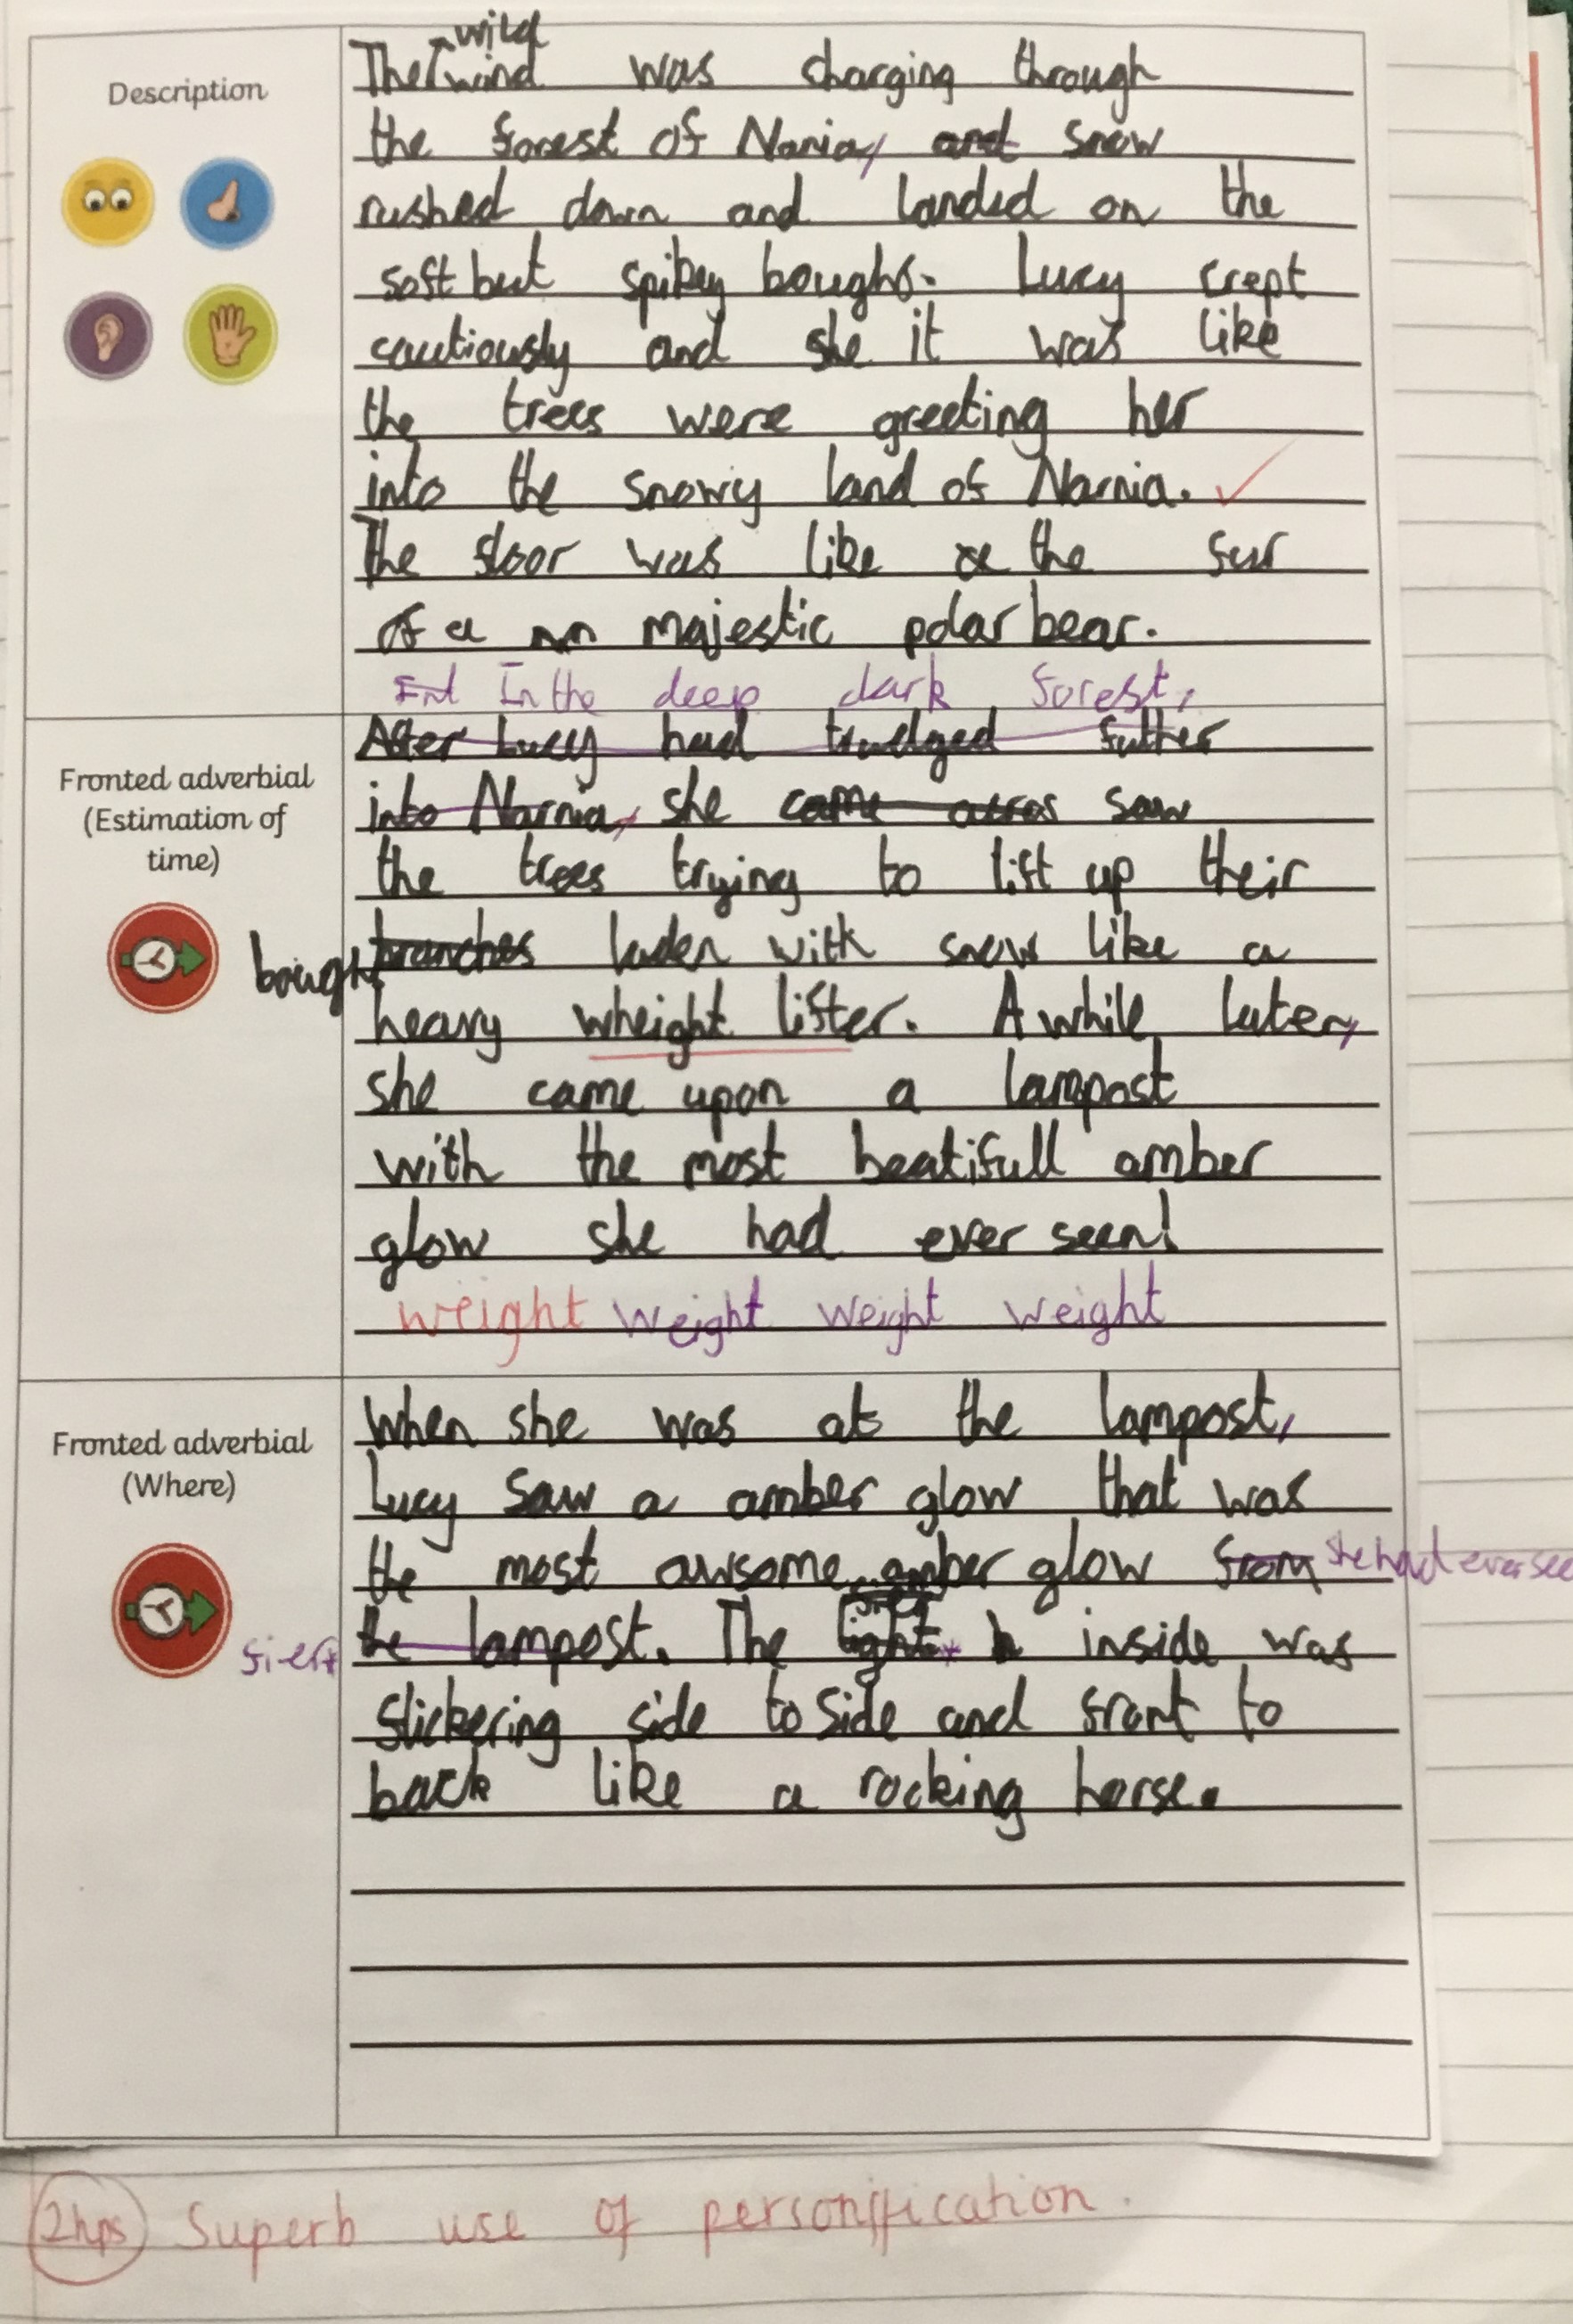 Description
wild
The wind was charging through
the forest of Nania, and snow
rushed down and landed on the
soft but spikey boughs. Lucy crept
cautiously and she it was like
the trees were greeting her
into the snowy land of Narnia.
The floor was like a the fur
of a majestic polar bear.
In the deep dark forest,
Fronted adverbial
(Estimation of
time)
After Lucy had trudged futher
into Narnia, she came acros saw
the trees trying to lift up their
bough branches laden with snow like a
heavy wheight lifter. A while later,
she came upon a lampost
with the most beatifull amber
glow she had ever seen!
weight weight weight weight
Fronted adverbial
(Where)
When she was at the lampost,
Lucy saw a amber glow that was
the most awsome amber glow from she had ever see
the lampost. The light inside was
flickering side to side and front to
back like a rocking horse.
2hps Superb use of personification.